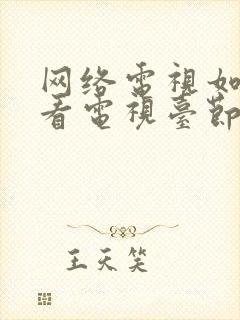 网络電視如
看電視臺節
王天笑